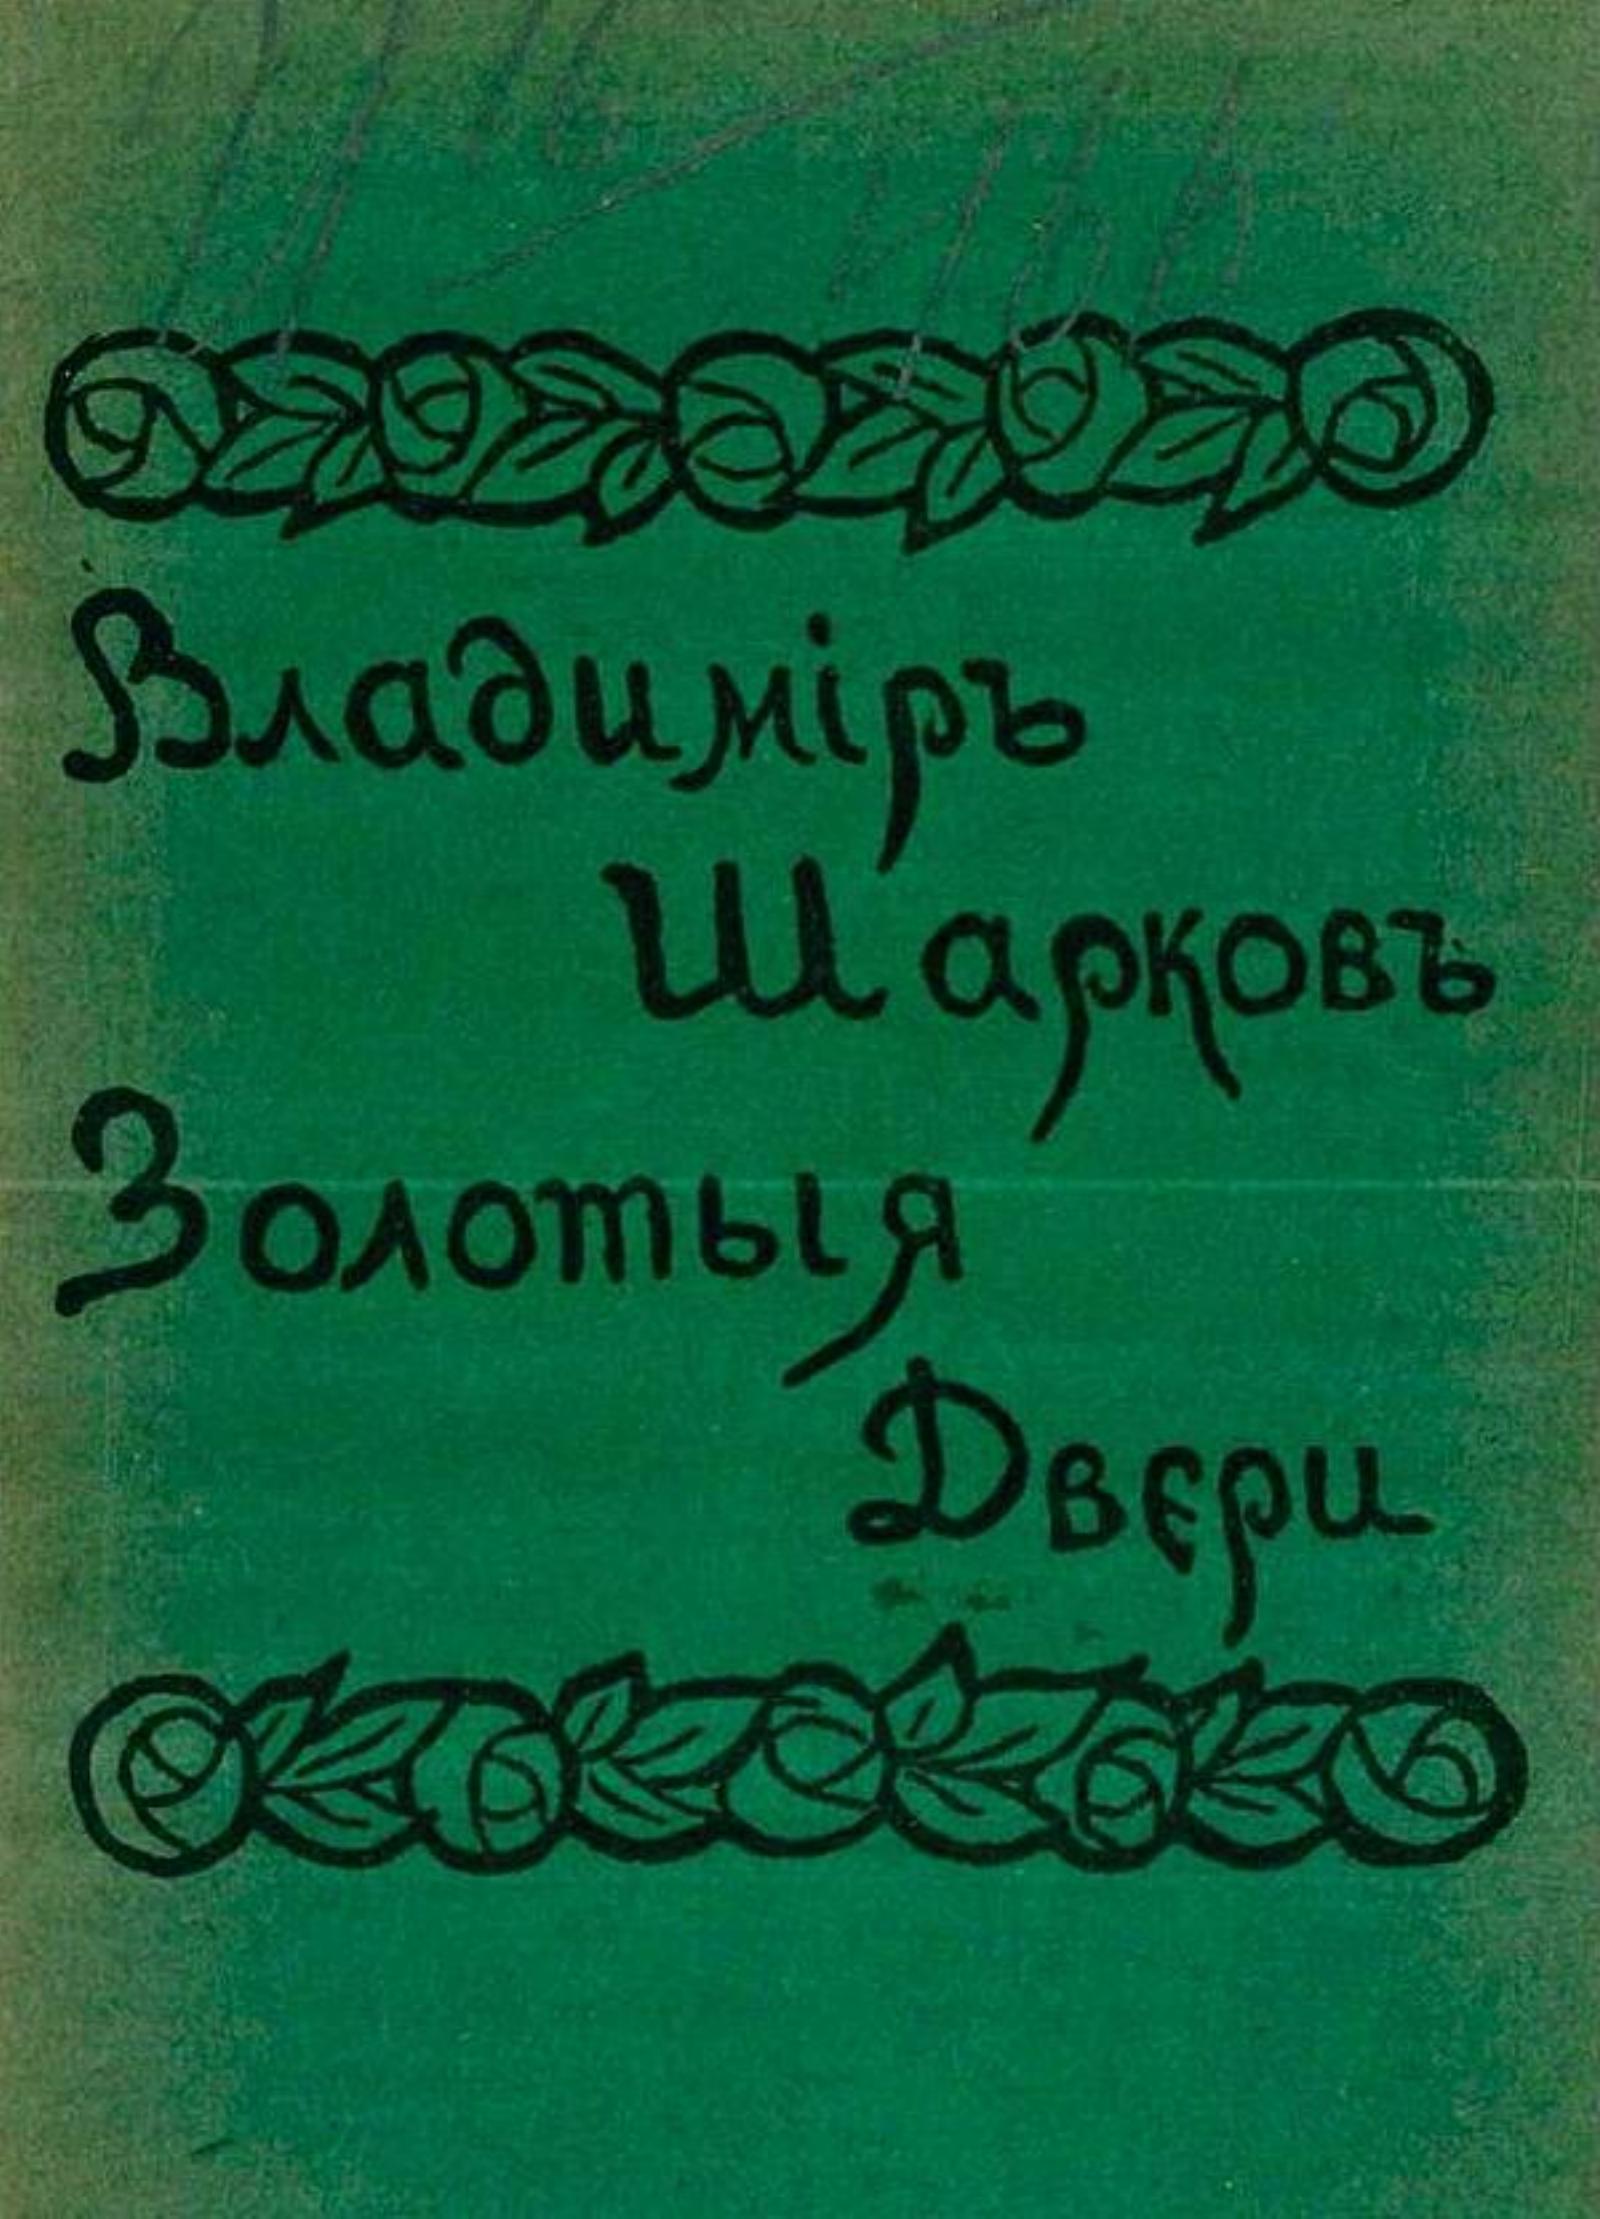 Владиміръ
Шарковъ
Золотыя
Двери